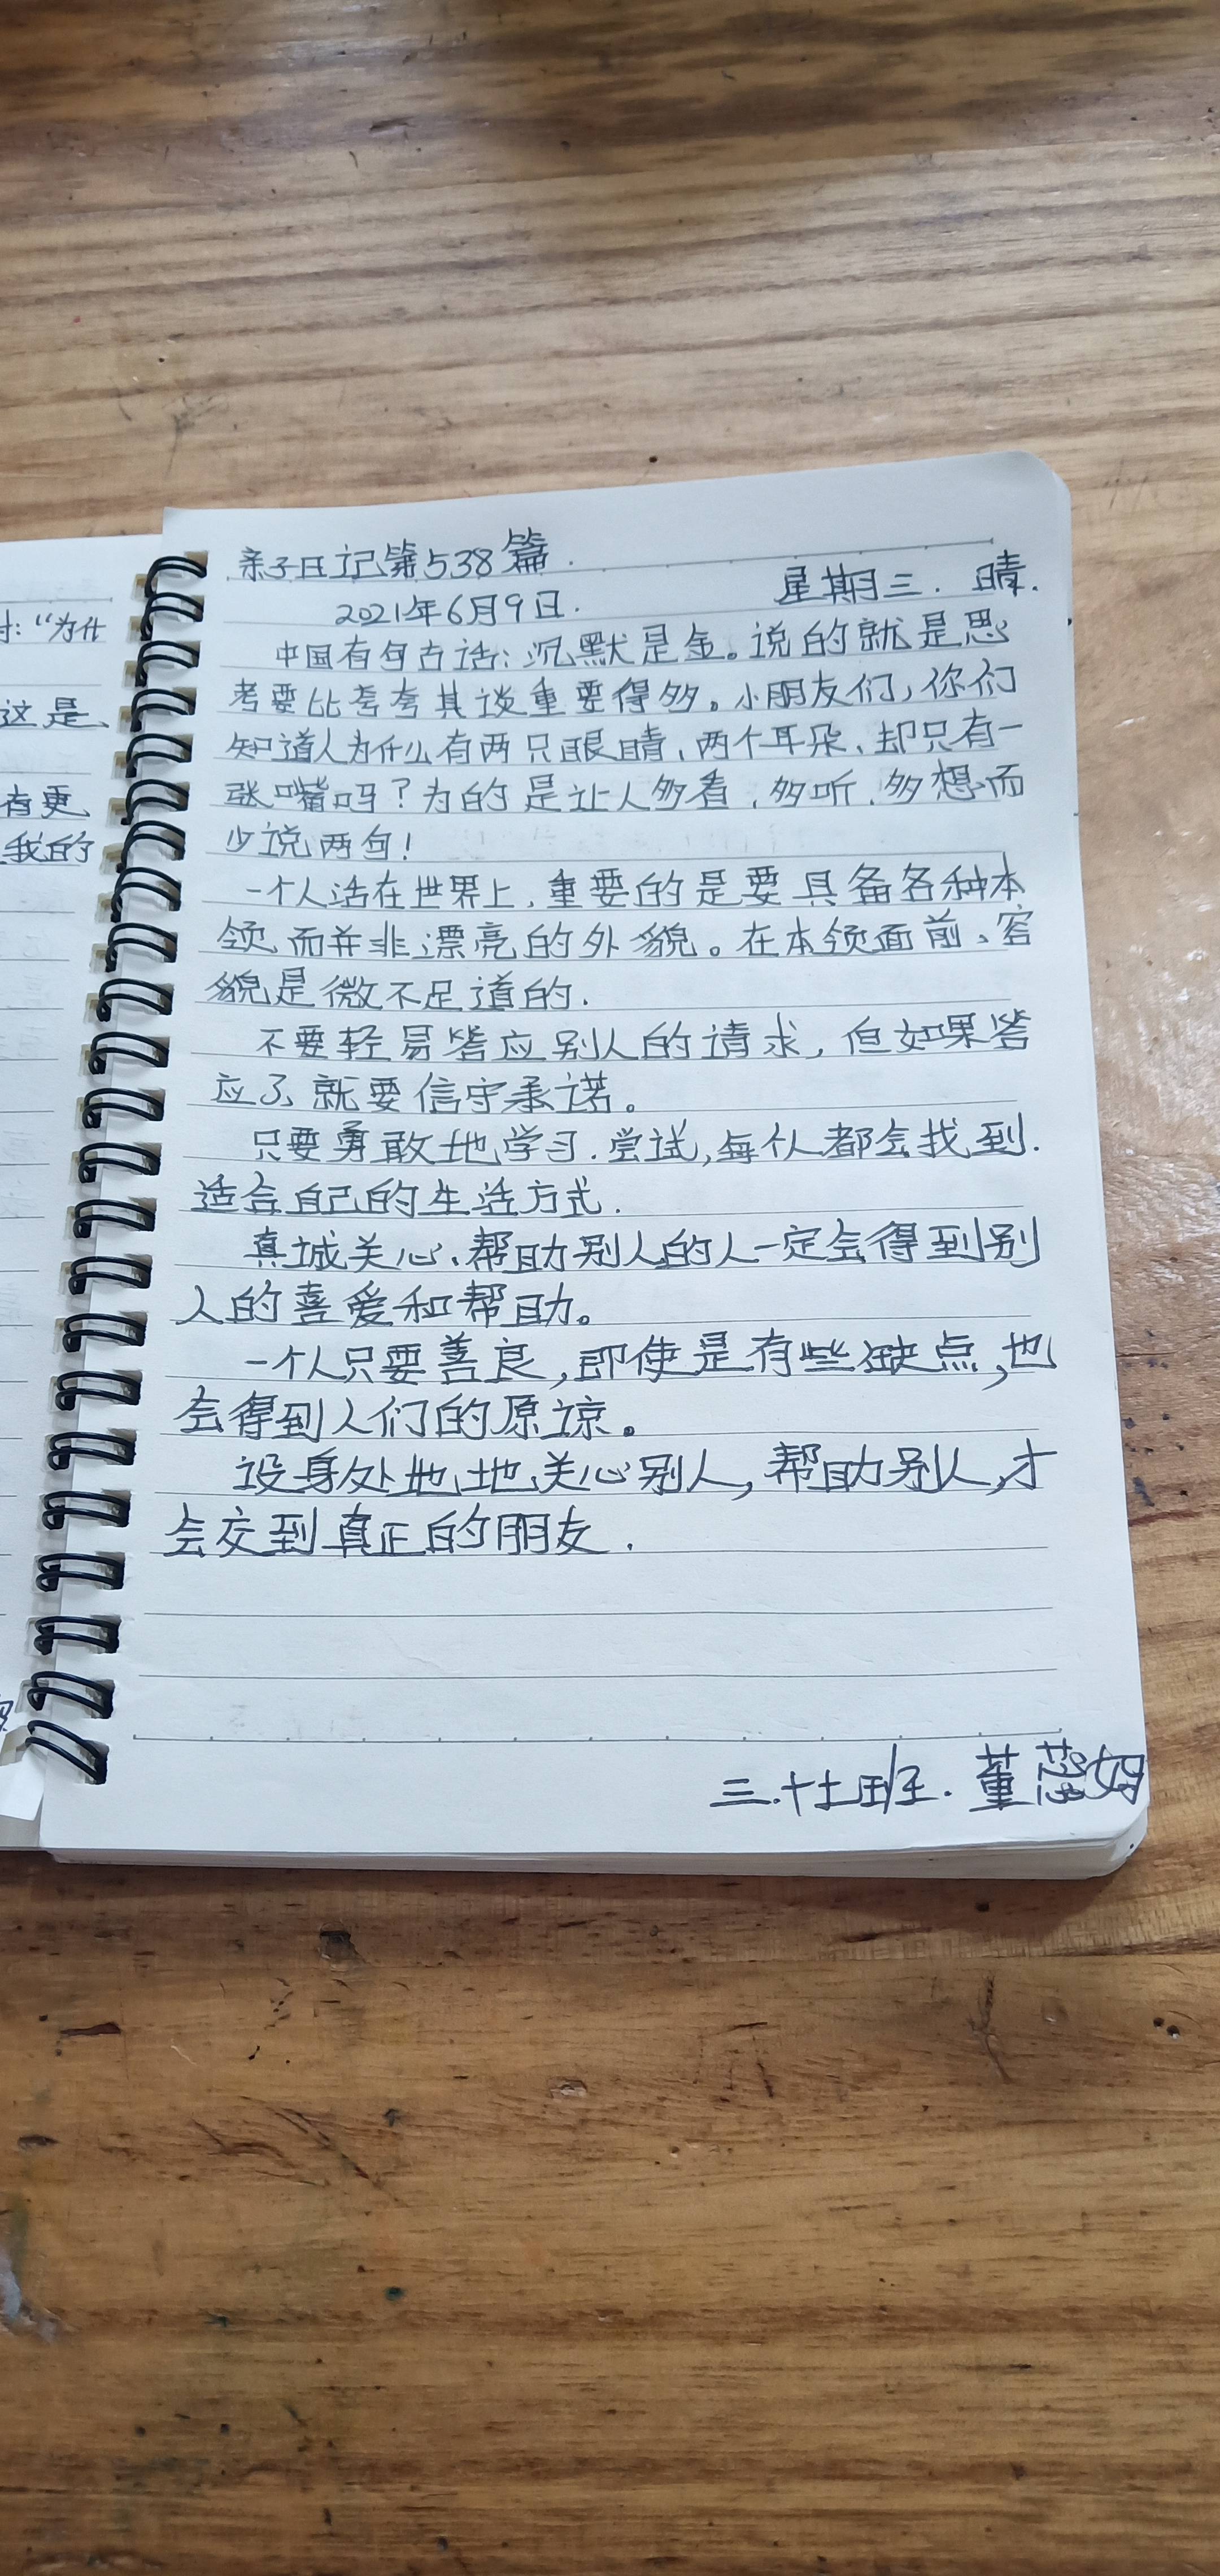 亲子日记第538篇.
2021年6月9日. 星期三. 晴.
中国有句古话：沉默是金。说的就是思
考要比夸夸其谈重要得多。小朋友们，你们
知道人为什么有两只眼睛、两个耳朵、却只有一
张嘴吗？为的是让人多看、多听、多想而
少说两句！
一个人活在世界上，重要的是要具备各种本
领而并非漂亮的外貌。在本领面前、容
貌是微不足道的.
不要轻易答应别人的请求，但如果答
应了就要信守承诺。
只要勇敢地学习.尝试，每个人都会找到.
适合自己的生活方式.
真诚关心、帮助别人的人一定会得到别
人的喜爱和帮助。
一个人只要善良，即使是有些缺点，也
会得到人们的原谅。
设身处地地关心别人，帮助别人，才
会交到真正的朋友.
三.十七班. 董蕊
:“为什
这是、
有更
我的